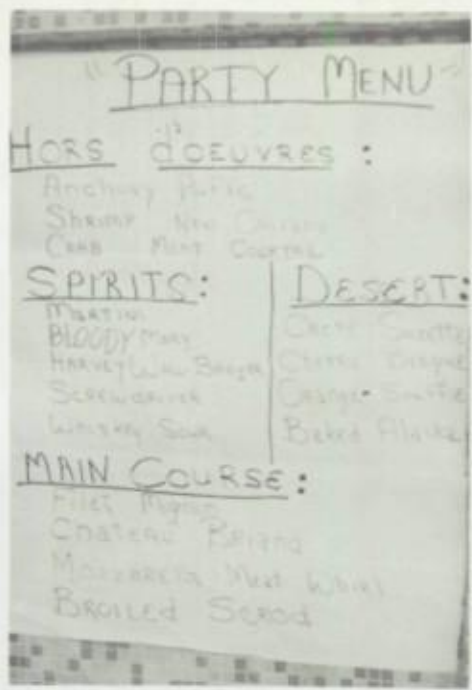 "PARTY MENU"
HORS d'OEUVRES :
Anchovy
SHRIMP New
CRAB MEAT COCKTAIL
SPIRITS:
MARTINI
BLOODY MARY
HARVEY WALL BANGER
SCREWDRIVER
Whiskey Sour
DESERT:
Crepe Suzette
Cherry
Orange Souffle
Baked Alaska
MAIN COURSE:
Filet Mignon
Chateau Briand
Mozzarella Meat Whirl
BROILED SCROD